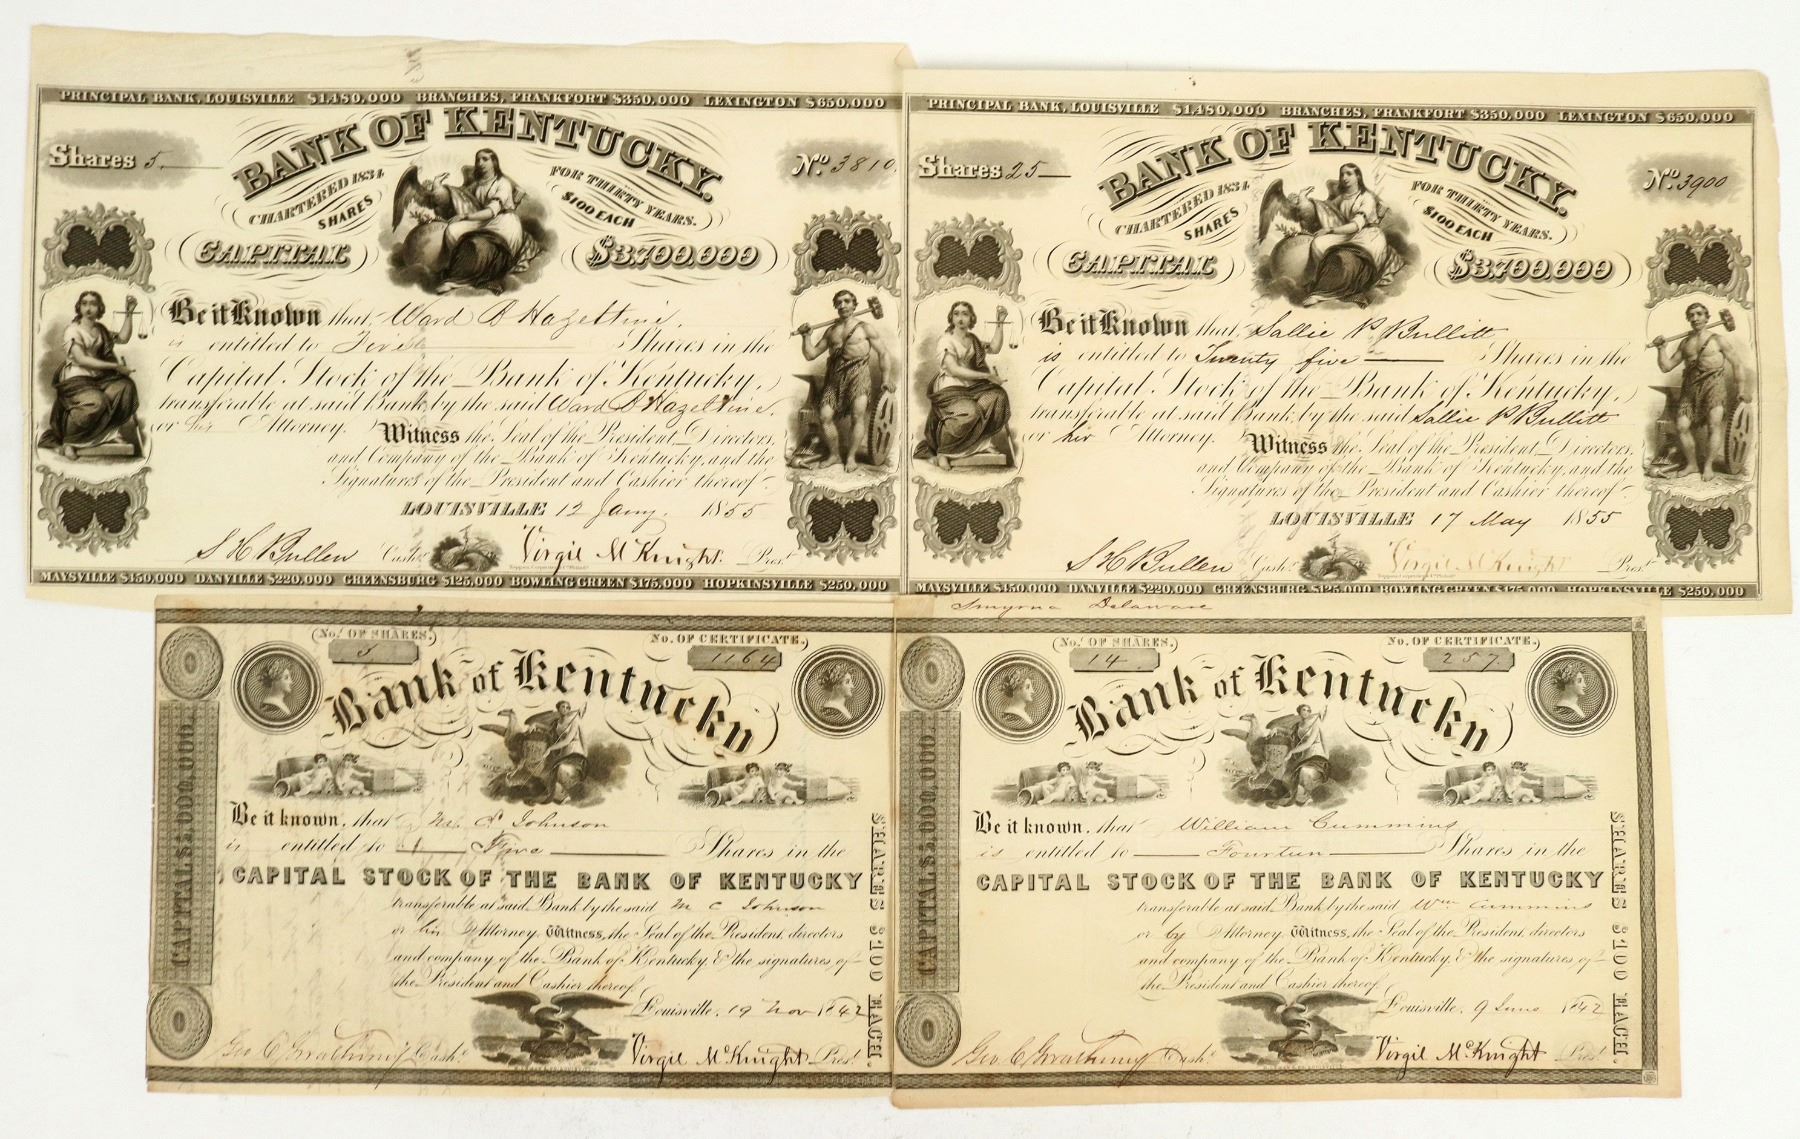 PRINCIPAL BANK, LOUISVILLE $1,480,000 BRANCHES, FRANKFORT $350,000 LEXINGTON $650,000
BANK OF KENTUCKY.
Shares 5
No. 3810
CHARTERED 1834 FOR THIRTY YEARS.
SHARES $100 EACH
CAPITAL $3,700,000
Be it Known that Ward B Hazeltine
is entitled to Five Shares in the
Capital Stock of the Bank of Kentucky,
transferable at said Bank by the said Ward B Hazeltine
or his Attorney. Witness the Seal of the President Directors
and Company of the Bank of Kentucky, and the
Signatures of the President and Cashier thereof
LOUISVILLE 12 Jany. 1855
S H Bullen Cashr. Virgil McKnight. Prest.
MAYSVILLE $450,000 DANVILLE $220,000 GREENSBURG $125,000 BOWLING GREEN $175,000 HOPKINSVILLE $250,000
PRINCIPAL BANK, LOUISVILLE $1,480,000 BRANCHES, FRANKFORT $350,000 LEXINGTON $650,000
BANK OF KENTUCKY.
Shares 25
No. 3900
CHARTERED 1834 FOR THIRTY YEARS.
SHARES $100 EACH
CAPITAL $3,700,000
Be it Known that Sallie P Bullitt
is entitled to Twenty five Shares in the
Capital Stock of the Bank of Kentucky,
transferable at said Bank by the said Sallie P Bullitt
or her Attorney. Witness the Seal of the President Directors
and Company of the Bank of Kentucky, and the
Signatures of the President and Cashier thereof
LOUISVILLE 17 May 1855
S H Bullen Cashr. Virgil McKnight Prest.
MAYSVILLE $450,000 DANVILLE $220,000 GREENSBURG $125,000 BOWLING GREEN $175,000 HOPKINSVILLE $250,000
No. OF SHARES. No. OF CERTIFICATE.
5 1164
Bank of Kentucky
CAPITAL $5,000,000.
Be it known, that M. C. Johnson
is entitled to Five Shares in the
CAPITAL STOCK OF THE BANK OF KENTUCKY
transferable at said Bank by the said M C Johnson
or his Attorney. Witness, the Seal of the President, directors
and company of the Bank of Kentucky, & the signatures of
the President and Cashier thereof.
Louisville, 19 Nov 1842
Cashr. Virgil McKnight Prest.
SHARES $100 EACH.
Smyrna Delaware
No. OF SHARES. No. OF CERTIFICATE.
14 257
Bank of Kentucky
CAPITAL $5,000,000.
Be it known, that William Cummins
is entitled to Fourteen Shares in the
CAPITAL STOCK OF THE BANK OF KENTUCKY
transferable at said Bank by the said Wm Cummins
or by Attorney. Witness, the Seal of the President, directors
and company of the Bank of Kentucky, & the signatures of
the President and Cashier thereof.
Louisville, 9 June 1842
Cashr. Virgil McKnight Prest.
SHARES $100 EACH.